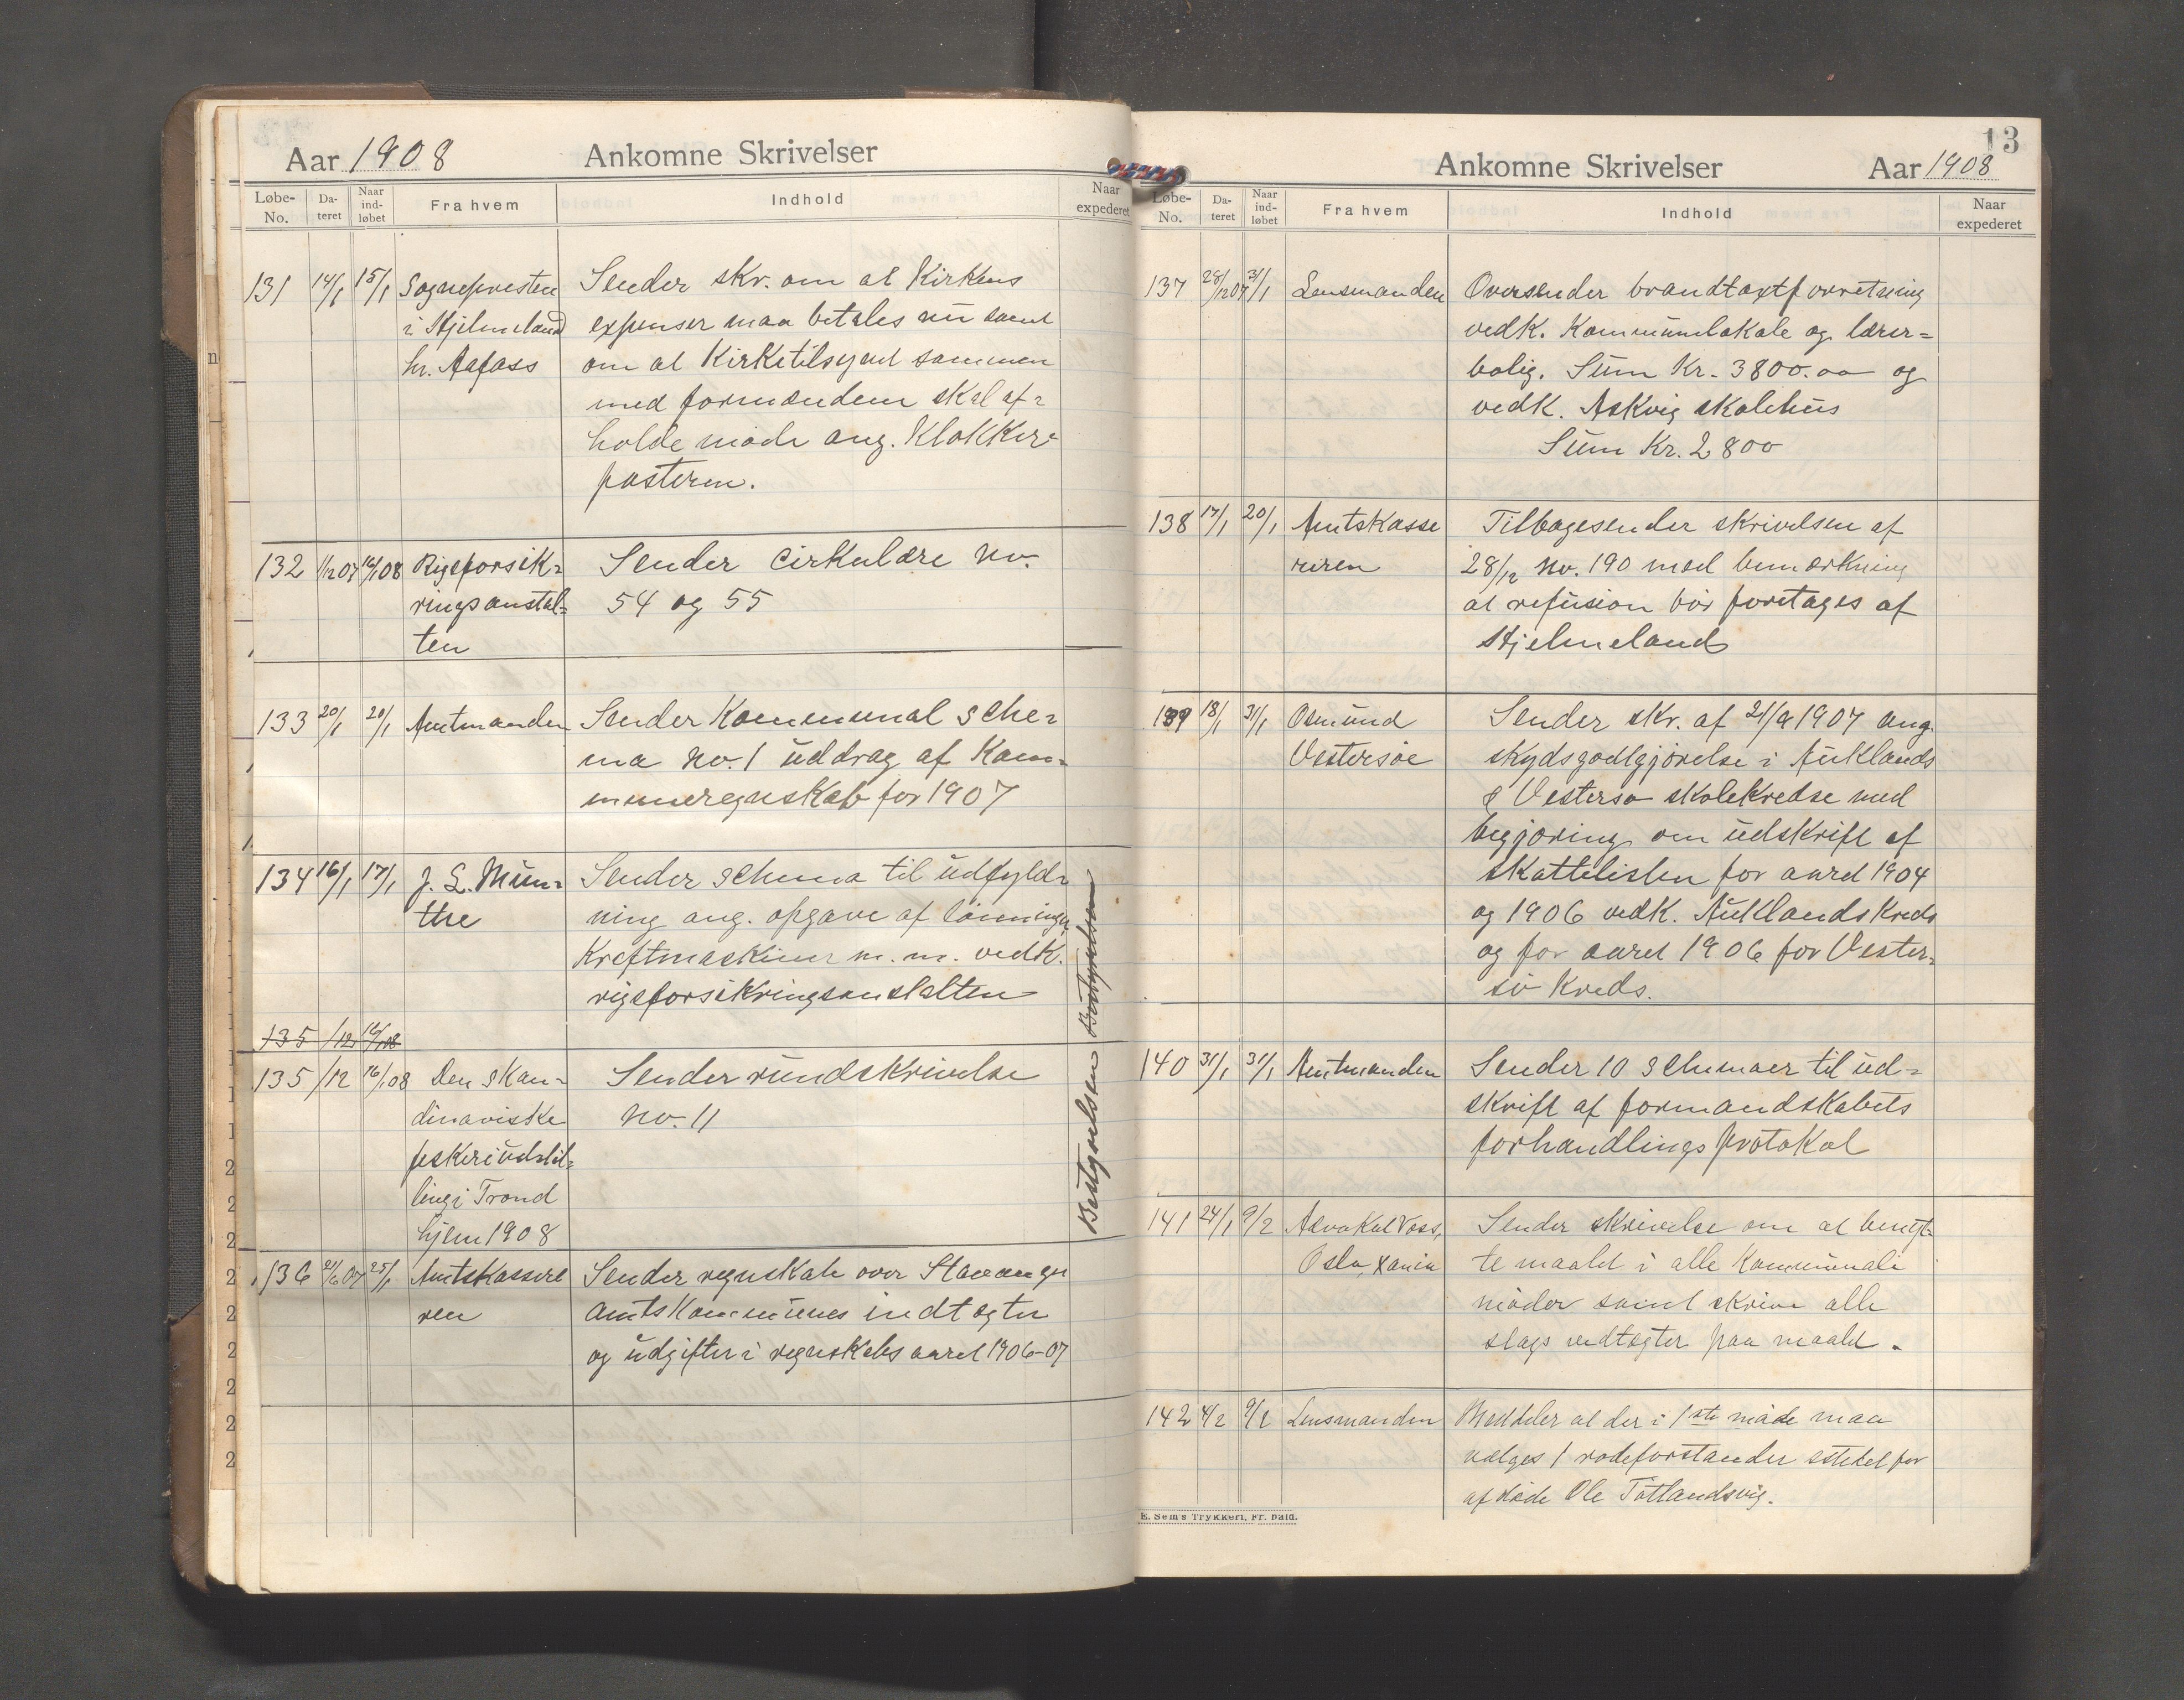 Aar 1908 Ankomne Skrivelser
Løbe-No. Da-teret Naar ind-løbet Fra hvem Indhold Naar expederet
131 14/1 15/1 Sognepresten Sender skr. om at Kirkens
i Hjelmeland expenser maa betales nu samt
hr. Aafass om at Kirketilsynet sammen
med formændene skal af=
holde møde ang. Klokker=
posteren.
132 1/12 07 16/1 08 Rigsforsik= Sender Cirkulære No.
ringsanstal= 54 og 55
ten
133 20/1 20/1 Amtmanden Sender Kommunal sche=
ma No. 1 uddrag af Kom=
muneregnskab for 1907
134 16/1 17/1 J. L. Mun= Sender schema til udfyld=
the ning ang. opgave af lønninger
Kraftmaskiner m. m. vedk.
rigsforsikringsanstalten
135 /12 16/1 08
135 /12 16/1 08 Den skan= Sender rundskrivelse
dinaviske No. 11
fiskeriudstil=
ling i Trond
hjem 1908
Bestyrelsen
136 21/6 07 25/1 Amtskassere Sender regnskab over Stavanger
ren amtskommunes indtægter
og udgifter i regnskabsaaret 1906-07
13
Ankomne Skrivelser Aar 1908
Løbe-No. Da-teret Naar ind-løbet Fra hvem Indhold Naar expederet
137 28/12 07 31/1 Lensmanden Oversender brandtaxtforretning
vedk. Kommunelokale og lærer=
bolig. Sum Kr. 3800.00 og
vedk. Askvig skolehus
Sum Kr. 2800
138 17/1 20/1 Amtskasse Tilbagesender skrivelsen af
reren 28/12 No. 190 med bemærkning
at refusion bør foretages af
Hjelmeland
139 18/1 31/1 Osmund Sender skr. af 21/9 1907 ang.
Vestersøe skydsgodtgjørelse i Auklands
& Vestersø skolekredse med
begjøring om udskrift af
skattelisten for aaret 1904
og 1906 vedk. Auklands Kreds
og for aaret 1906 for Vester=
sø Kreds.
140 31/1 31/1 Amtmanden Sender 10 schemaer til ud=
skrift af formandskabets
forhandlingsprotokol
141 24/1 9/2 Advokat Voss, Sender skrivelse om at benyt=
Oslo, Xania te maalet i alle Kommunale
møder samt skrive alle
slags vedtægter paa maalet.
142 4/2 9/2 Lensmanden Meddeler at der i 1ste møde maa
vælges 1 rodeforstander istedet for
afdøde Ole Tøtlandsvig.
E. Sem's Trykkeri, Fr. hald.